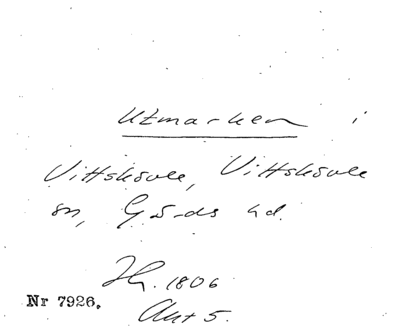 Utmarken i
Vittskövle, Vittskövle
sn, Gärds hd.
1806
Nr 7926.
Akt 5.